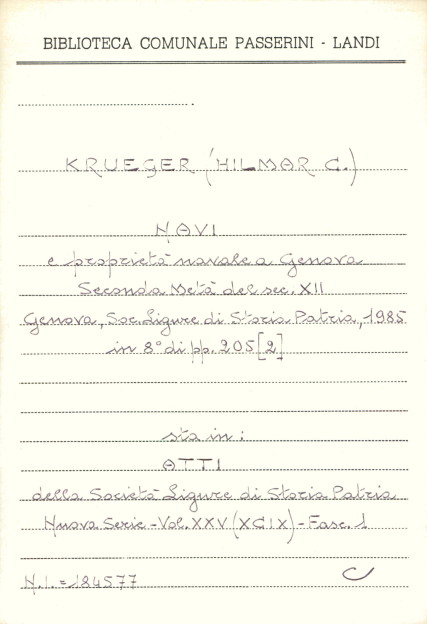 BIBLIOTECA COMUNALE PASSERINI - LANDI
KRUEGER (HILMAR C.)
NAVI
e proprietà navale a Genova
Seconda Metà del sec. XII
Genova, Soc. Ligure di Storia Patria, 1985
in 8° di pp. 205[2]
sta in:
ATTI
della Società Ligure di Storia Patria
Nuova Serie - Vol. XXV (XCIX) - Fasc. 1
N.I. = 184577
C